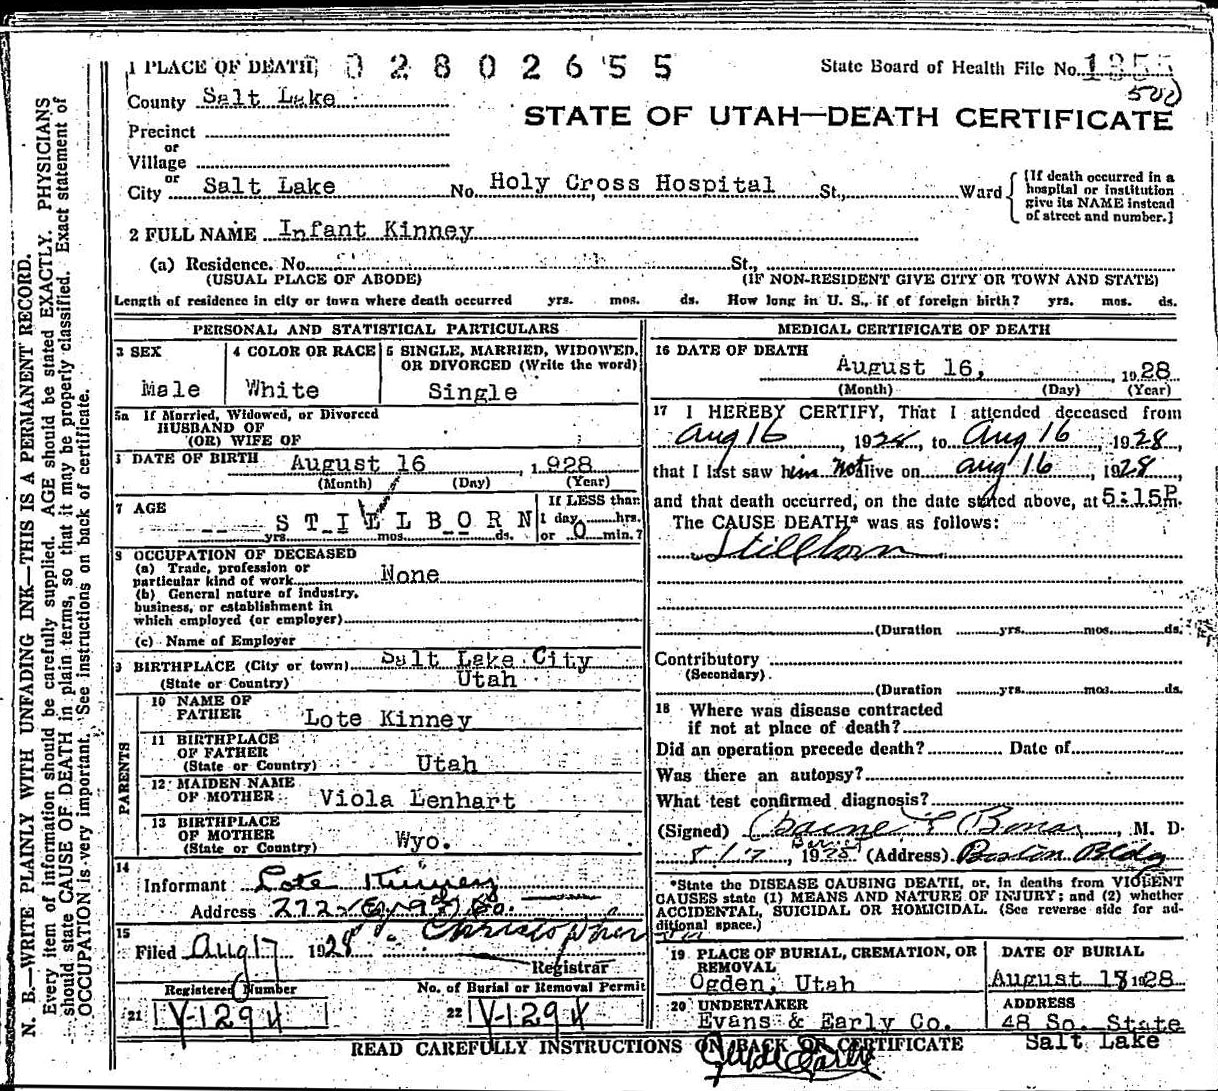 1 PLACE OF DEATH 02802655 State Board of Health File No. 1355
500
County Salt Lake
STATE OF UTAH—DEATH CERTIFICATE
Precinct
or
Village
or
City Salt Lake No. Holy Cross Hospital St., Ward
[If death occurred in a
hospital or institution
give its NAME instead
of street and number.]
2 FULL NAME Infant Kinney
(a) Residence. No. St.,
(USUAL PLACE OF ABODE) (IF NON-RESIDENT GIVE CITY OR TOWN AND STATE)
Length of residence in city or town where death occurred yrs. mos. ds. How long in U. S., if of foreign birth? yrs. mos. ds.
PERSONAL AND STATISTICAL PARTICULARS
3 SEX
Male
4 COLOR OR RACE
White
5 SINGLE, MARRIED, WIDOWED,
OR DIVORCED (Write the word)
Single
5a If Married, Widowed, or Divorced
HUSBAND OF
(OR) WIFE OF
DATE OF BIRTH August 16, 1928
(Month) (Day) (Year)
7 AGE STILLBORN
yrs. mos. ds.
If LESS than
1 day, hrs.
or 0 min.?
8 OCCUPATION OF DECEASED
(a) Trade, profession or
particular kind of work None
(b) General nature of industry,
business, or establishment in
which employed (or employer)
(c) Name of Employer
9 BIRTHPLACE (City or town) Salt Lake City
(State or Country) Utah
PARENTS
10 NAME OF
FATHER Lote Kinney
11 BIRTHPLACE
OF FATHER
(State or Country) Utah
12 MAIDEN NAME
OF MOTHER Viola Lenhart
13 BIRTHPLACE
OF MOTHER
(State or Country) Wyo.
14
Informant Lote Kinney
Address 272 So.
15
Filed Aug 17 1928 Christopherson
Registrar
Registered Number
21 Y-1294
No. of Burial or Removal Permit
22 Y-1294
MEDICAL CERTIFICATE OF DEATH
16 DATE OF DEATH
August 16, 1928
(Month) (Day) (Year)
17 I HEREBY CERTIFY, That I attended deceased from
Aug 16, 1928, to Aug 16, 1928,
that I last saw him not alive on Aug 16, 1928,
and that death occurred, on the date stated above, at 5:15P m.
The CAUSE DEATH* was as follows:
Stillborn
(Duration yrs. mos. ds.
Contributory
(Secondary).
(Duration yrs. mos. ds.
18 Where was disease contracted
if not at place of death?
Did an operation precede death? Date of
Was there an autopsy?
What test confirmed diagnosis?
(Signed) M. D.
8/17, 1928 (Address) Boston Bldg
*State the DISEASE CAUSING DEATH, or, in deaths from VIOLENT
CAUSES state (1) MEANS AND NATURE OF INJURY; and (2) whether
ACCIDENTAL, SUICIDAL OR HOMICIDAL. (See reverse side for ad-
ditional space.)
19 PLACE OF BURIAL, CREMATION, OR
REMOVAL
Ogden, Utah
DATE OF BURIAL
August 18 1928
20 UNDERTAKER
Evans & Early Co.
ADDRESS
48 So. State
Salt Lake
READ CAREFULLY INSTRUCTIONS ON BACK OF CERTIFICATE
N. B.—WRITE PLAINLY WITH UNFADING INK—THIS IS A PERMANENT RECORD.
Every item of information should be carefully supplied. AGE should be stated EXACTLY. PHYSICIANS
should state CAUSE OF DEATH in plain terms, so that it may be properly classified. Exact statement of
OCCUPATION is very important. See instructions on back of certificate.